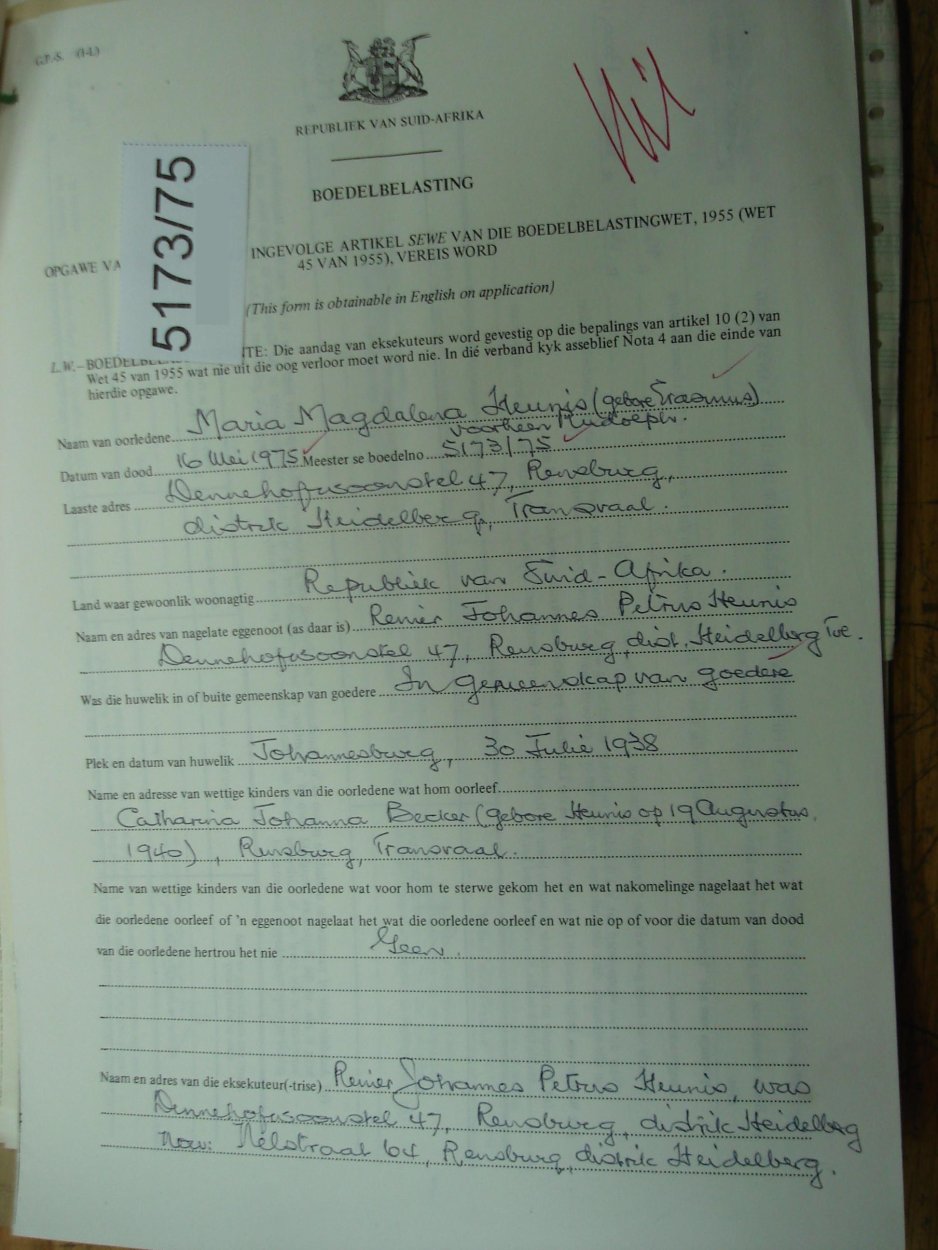 G.P.-S. (J4)
REPUBLIEK VAN SUID-AFRIKA
Nil
BOEDELBELASTING
5173/75
OPGAWE VA INGEVOLGE ARTIKEL SEWE VAN DIE BOEDELBELASTINGWET, 1955 (WET
45 VAN 1955), VEREIS WORD
(This form is obtainable in English on application)
L.W.–BOEDELBEL TE: Die aandag van eksekuteurs word gevestig op die bepalings van artikel 10 (2) van
Wet 45 van 1955 wat nie uit die oog verloor moet word nie. In dié verband kyk asseblief Nota 4 aan die einde van
hierdie opgawe.
Naam van oorledene Maria Magdalena Heunis (gebore Erasmus)
voorheen Rudolph.
Datum van dood 16 Mei 1975 Meester se boedelno 5173/75
Laaste adres Dennehofwoonstel 47, Rensburg,
distrik Heidelberg, Transvaal.
Land waar gewoonlik woonagtig Republiek van Suid-Afrika.
Naam en adres van nagelate eggenoot (as daar is) Renier Johannes Petrus Heunis
Dennehofwoonstel 47, Rensburg, dist. Heidelberg Tvl.
Was die huwelik in of buite gemeenskap van goedere In gemeenskap van goedere
Plek en datum van huwelik Johannesburg, 30 Julie 1938
Name en adresse van wettige kinders van die oorledene wat hom oorleef
Catharina Johanna Becker (gebore Heunis op 19 Augustus,
1940), Rensburg, Transvaal.
Name van wettige kinders van die oorledene wat voor hom te sterwe gekom het en wat nakomelinge nagelaat het wat
die oorledene oorleef of 'n eggenoot nagelaat het wat die oorledene oorleef en wat nie op of voor die datum van dood
van die oorledene hertrou het nie Geen.
Naam en adres van die eksekuteur(-trise) Renier Johannes Petrus Heunis, was
Dennehofwoonstel 47, Rensburg, distrik Heidelberg
Nou: Nélstraat 64, Rensburg, distrik Heidelberg.